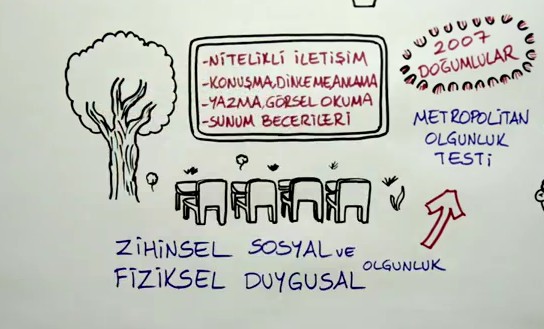 -NİTELİKLİ İLETİŞİM
-KONUŞMA,DİNLEME,ANLAMA
-YAZMA,GÖRSEL OKUMA
-SUNUM BECERİLERİ
2007
DOĞUMLULAR
METROPOLİTAN
OLGUNLUK
TESTİ
ZİHİNSEL SOSYAL VE
FİZİKSEL DUYGUSAL OLGUNLUK